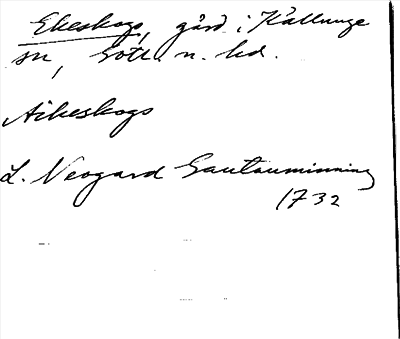 Ekeskogs, gård i Källunge
sn, Gotl. n. hd.
Aikeskogs
L. Neogard Gautauminning
1732